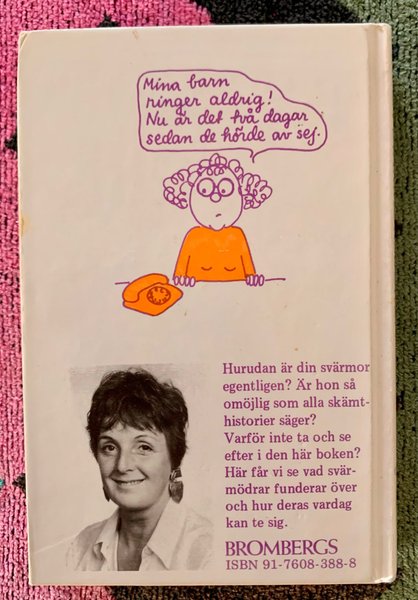 Mina barn
ringer aldrig!
Nu är det två dagar
sedan de hörde av sej.
Hurudan är din svärmor
egentligen? Är hon så
omöjlig som alla skämt-
historier säger?
Varför inte ta och se
efter i den här boken?
Här får vi se vad svär-
mödrar funderar över
och hur deras vardag
kan te sig.
BROMBERGS
ISBN 91-7608-388-8